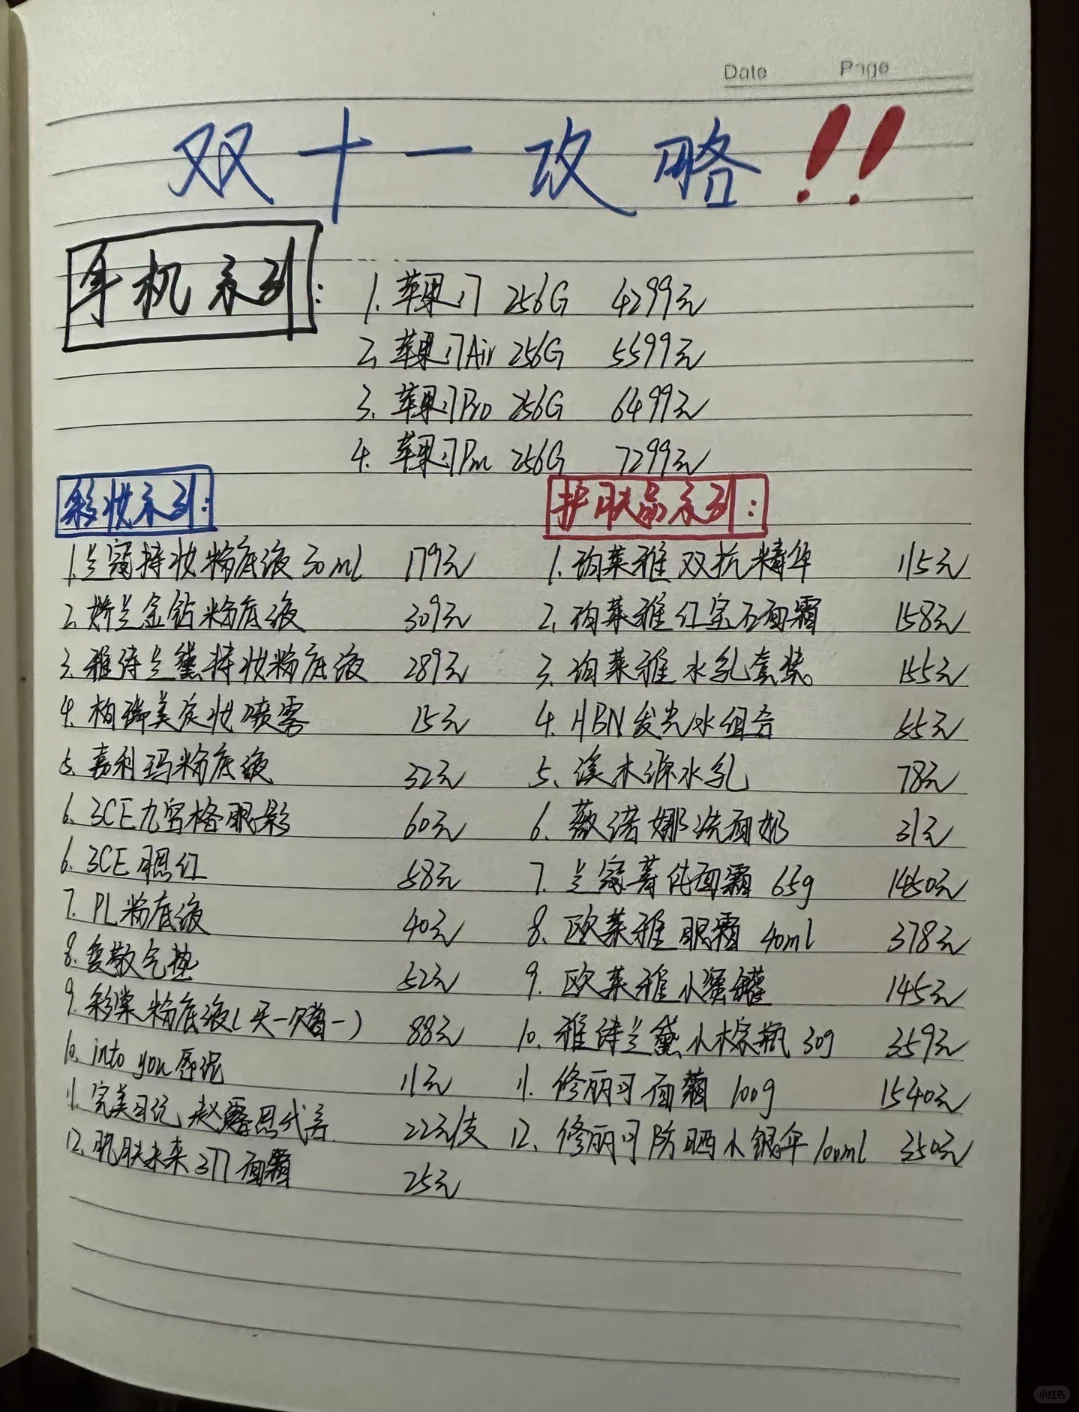 Date Page
双十一攻略!!
手机系列:
1. 苹果17 256G 4299元
2. 苹果17Air 256G 5599元
3. 苹果17Pro 256G 6499元
4. 苹果17Pm 256G 7299元
彩妆系列:
1. 兰蔻持妆粉底液 30ml 179元
2. 娇兰金钻粉底液 309元
3. 雅诗兰黛持妆粉底液 289元
4. 柏瑞美定妆喷雾 15元
5. 嘉利玛粉底液 32元
6. 3CE九宫格眼影 60元
6. 3CE腮红 58元
7. PL粉底液 40元
8. 气垫 52元
9. 彩棠粉底液(买一赠一) 88元
10. into you唇泥 11元
11. 完美日记, 赵露思代言 22元/支
12. 肌肤未来377面霜 25元
护肤品系列:
1. 珀莱雅双抗精华 115元
2. 珀莱雅红宝石面霜 158元
3. 珀莱雅水乳套装 155元
4. HBN发光水组合 55元
5. 溪木源水乳 78元
6. 薇诺娜洗面奶 31元
7. 兰蔻菁纯面霜 65g 1450元
8. 欧莱雅眼霜 40ml 378元
9. 欧莱雅小蜜罐 145元
10. 雅诗兰黛小棕瓶 30g 359元
11. 修丽可面霜 100g 1540元
12. 修丽可防晒小银伞 100ml 350元
小红书